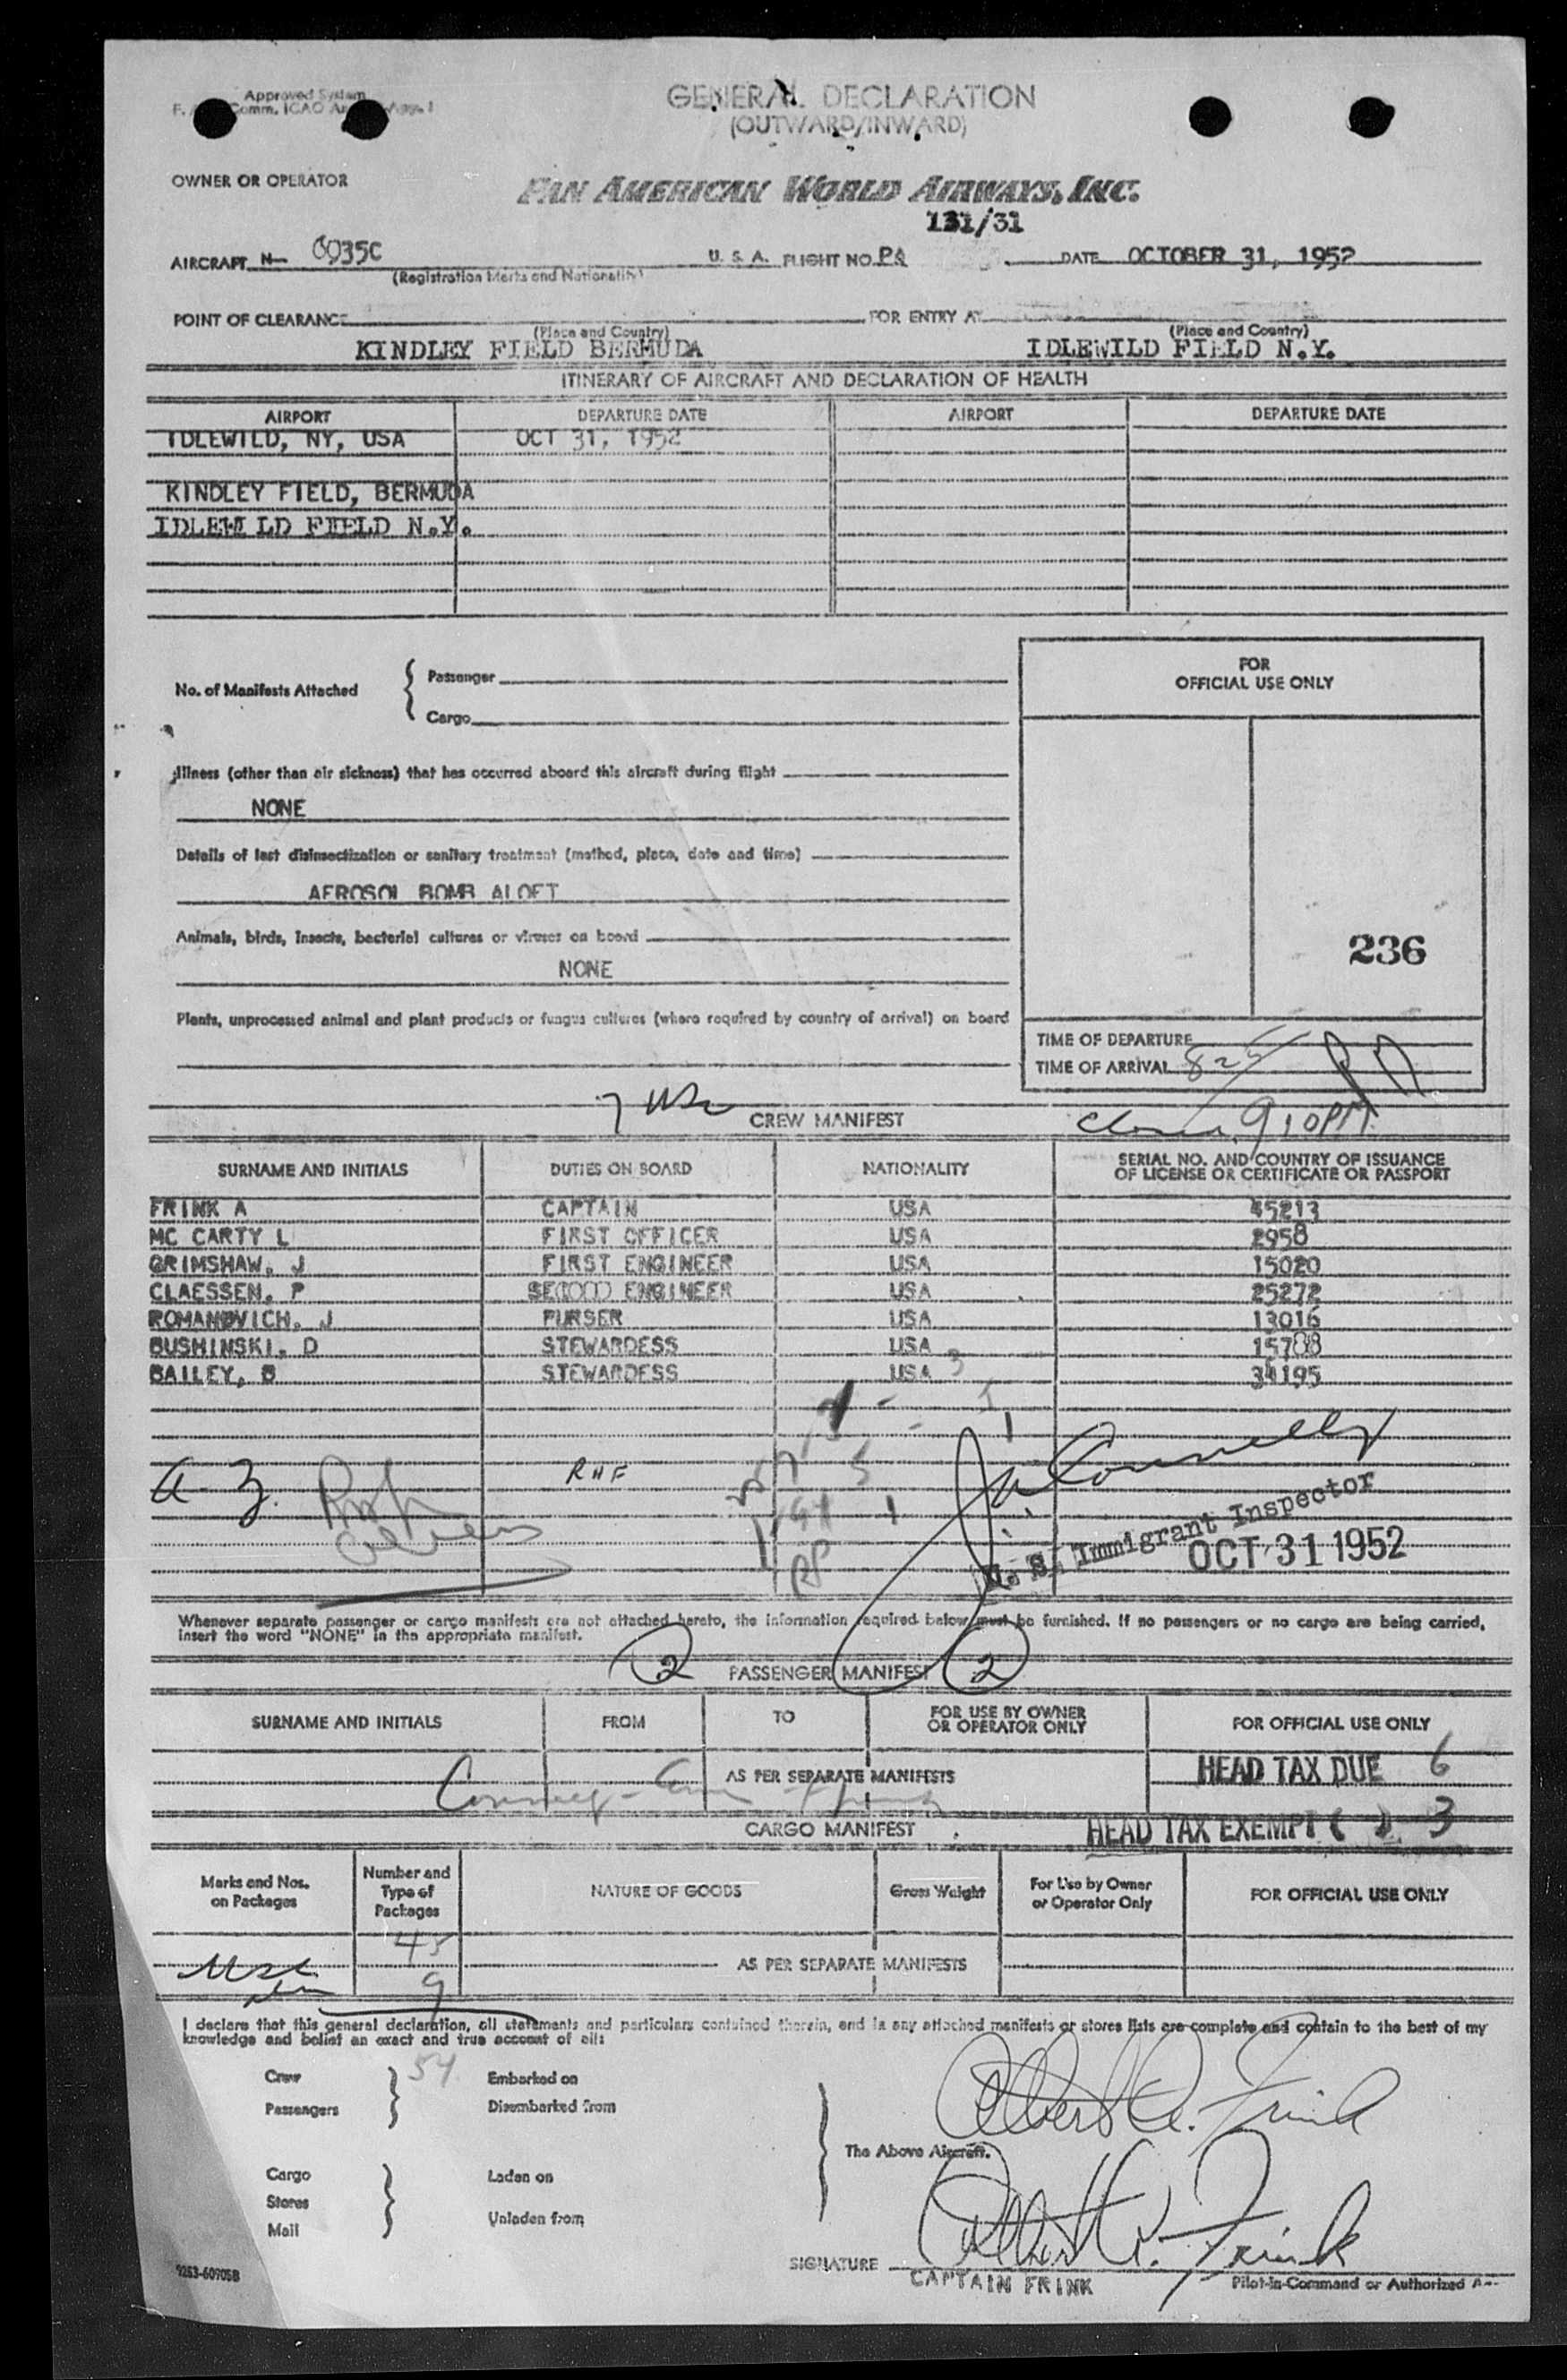 Approved System
F. Comm. ICAO
GENERAL DECLARATION
(OUTWARD/INWARD)
OWNER OR OPERATOR
PAN AMERICAN WORLD AIRWAYS, INC.
131/31
AIRCRAFT N- 6035C U. S. A. FLIGHT NO. PA DATE OCTOBER 31, 1952
(Registration Marks and Nationality)
POINT OF CLEARANCE FOR ENTRY AT
(Place and Country) (Place and Country)
KINDLEY FIELD BERMUDA IDLEWILD FIELD N.Y.
ITINERARY OF AIRCRAFT AND DECLARATION OF HEALTH
AIRPORT DEPARTURE DATE AIRPORT DEPARTURE DATE
IDLEWILD, NY, USA OCT 31, 1952
KINDLEY FIELD, BERMUDA
IDLEWI LD FIELD N.Y.
FOR
OFFICIAL USE ONLY
No. of Manifests Attached
Passenger
Cargo
Illness (other than air sickness) that has occurred aboard this aircraft during flight
NONE
Details of last disinsectization or sanitary treatment (method, place, date and time)
AEROSOL BOMB ALOFT
Animals, birds, insects, bacterial cultures or viruses on board
236
NONE
Plants, unprocessed animal and plant products or fungus cultures (where required by country of arrival) on board
TIME OF DEPARTURE
TIME OF ARRIVAL 825
7 USC
CREW MANIFEST 910PM
SURNAME AND INITIALS DUTIES ON BOARD NATIONALITY SERIAL NO. AND COUNTRY OF ISSUANCE
OF LICENSE OR CERTIFICATE OR PASSPORT
FRINK A CAPTAIN USA 45213
MC CARTY L FIRST OFFICER USA 2958
GRIMSHAW, J FIRST ENGINEER USA 15020
CLAESSEN, P SECOND ENGINEER USA 25272
ROMANOVICH, J PURSER USA 13016
BUSHINSKI, D STEWARDESS USA 15788
BAILEY, B STEWARDESS USA 34195
3
RHF
J. Connelly
U. S. Immigrant Inspector
OCT 31 1952
Whenever separate passenger or cargo manifests are not attached hereto, the information required below must be furnished. If no passengers or no cargo are being carried,
insert the word "NONE" in the appropriate manifest.
2 PASSENGER MANIFEST 2
SURNAME AND INITIALS FROM TO FOR USE BY OWNER
OR OPERATOR ONLY FOR OFFICIAL USE ONLY
HEAD TAX DUE 6
AS PER SEPARATE MANIFESTS
CARGO MANIFEST HEAD TAX EXEMPT ( ) 3
Marks and Nos.
on Packages
Number and
Type of
Packages
NATURE OF GOODS
Gross Weight
For Use by Owner
or Operator Only
FOR OFFICIAL USE ONLY
45
USC
9
AS PER SEPARATE MANIFESTS
I declare that this general declaration, all statements and particulars contained therein, and in any attached manifests or stores lists are complete and contain to the best of my
knowledge and belief an exact and true account of all:
54
Crew Embarked on
Passengers Disembarked from
Albert A. Frink
The Above Aircraft.
Cargo Laden on
Stores
Mail Unladen from
Albert A. Frink
SIGNATURE
CAPTAIN FRINK Pilot-in-Command or Authorized
9263-60905B